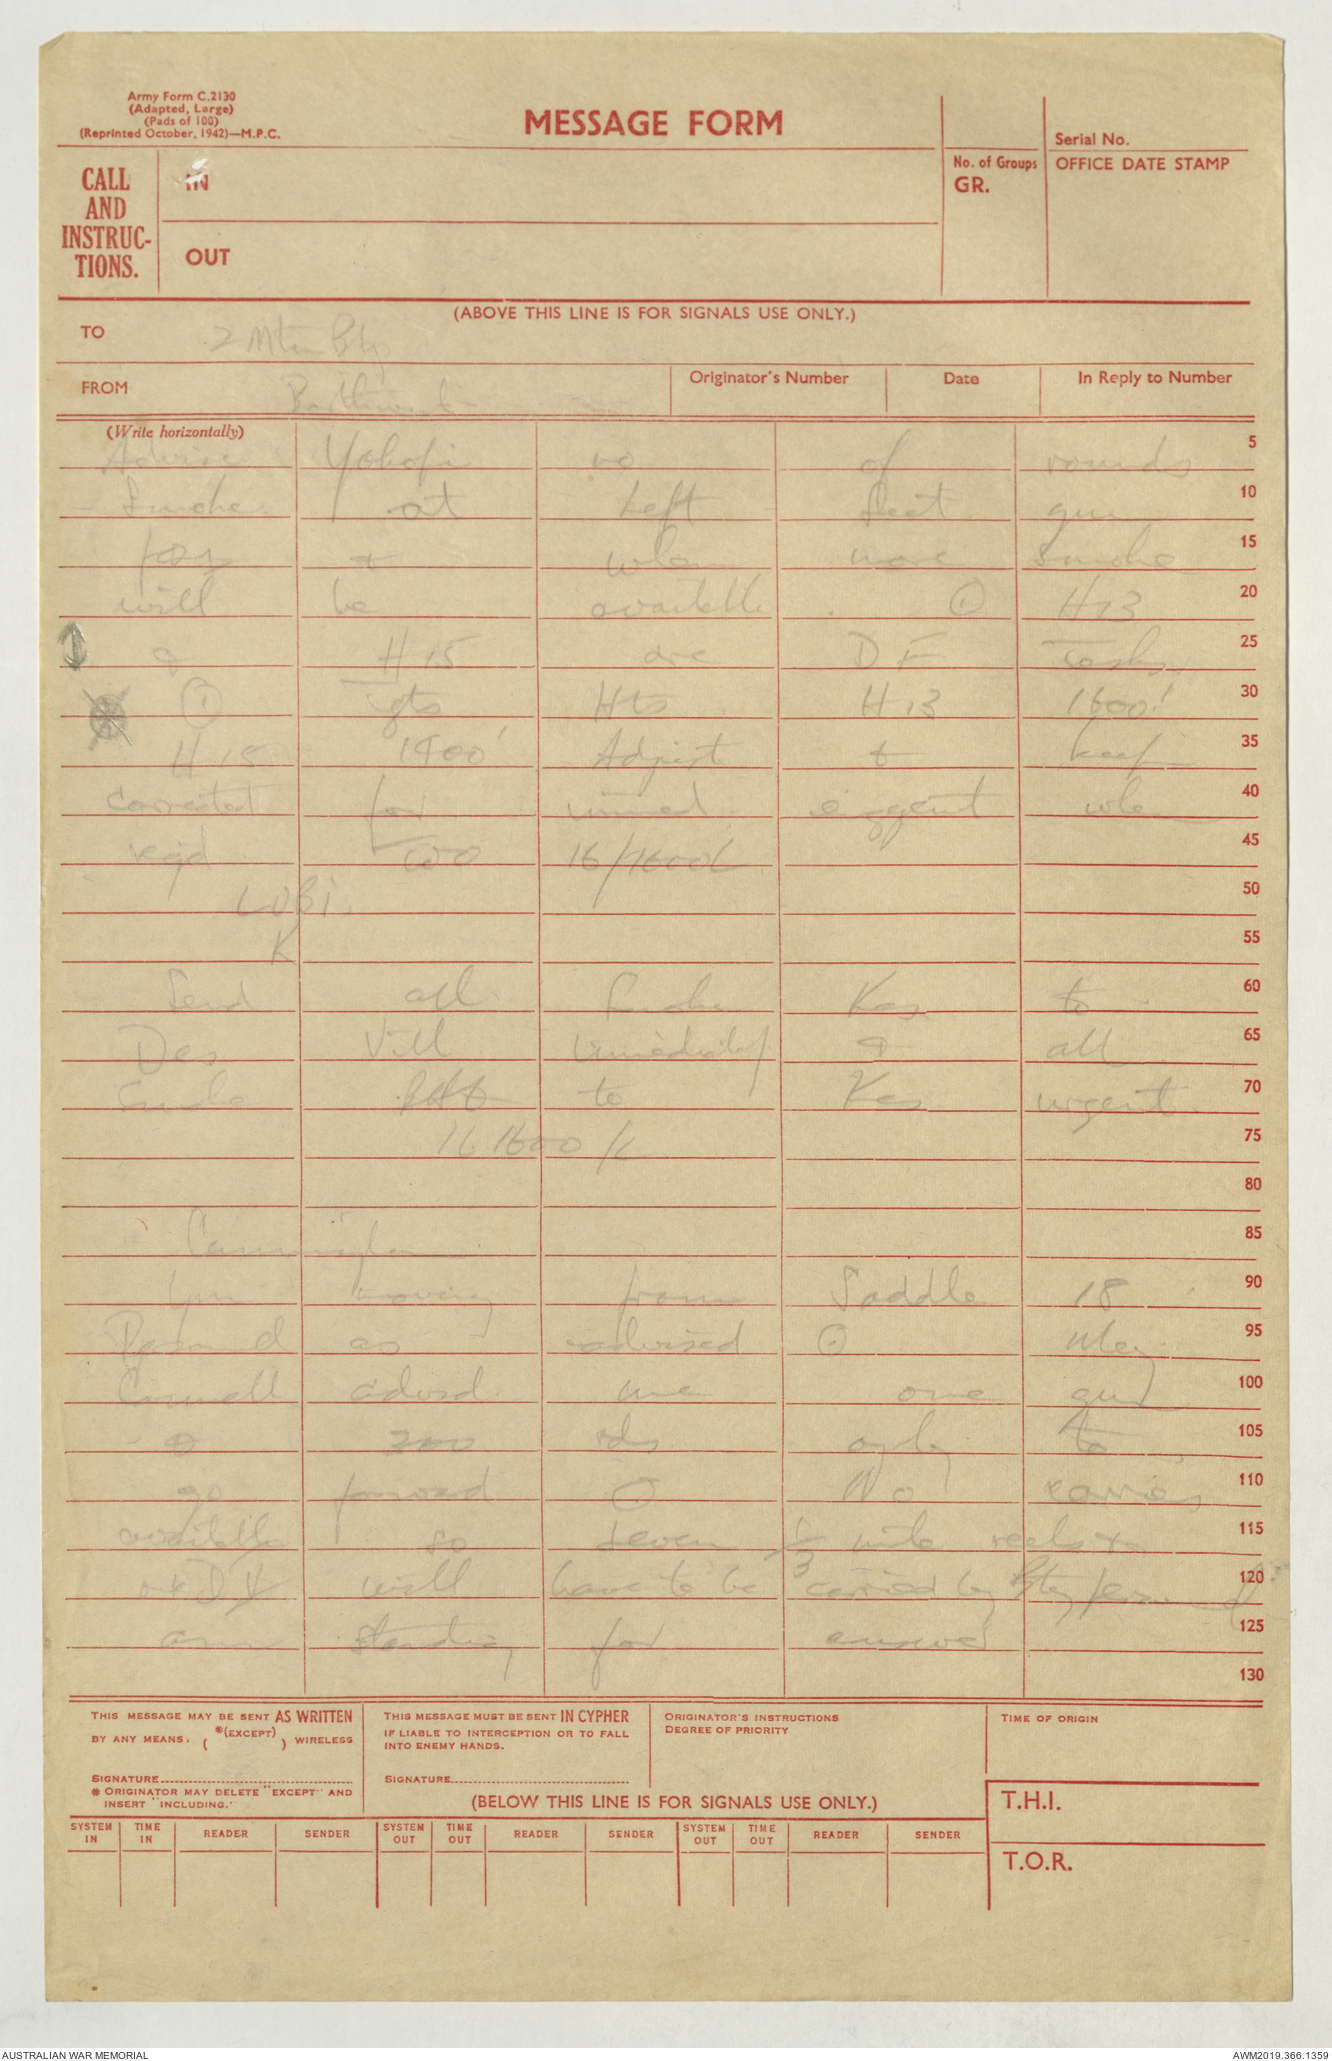 Army Form C.2130
(Adapted, Large)
(Pads of 100)
(Reprinted October, 1942)—M.P.C.
MESSAGE FORM
Serial No.
CALL AND INSTRUC-TIONS.
IN
OUT
No. of Groups
GR.
OFFICE DATE STAMP
(ABOVE THIS LINE IS FOR SIGNALS USE ONLY.)
TO 2 Mtn Bty
FROM
Originator's Number
Date
In Reply to Number
(Write horizontally)
Advise no of rounds 5
Smoke at Left Sect gun 10
posn + when more smoke 15
will be available . H13 20
& H15 are DF Tasks 25
① gts Hts H13 1600' 30
H15 1900' Adjust & keep 35
corrected for immed when 40
reqd 16/1600L 45
50
K 55
Send all Smoke Kes to 60
Des Vill immediately & all 65
Smoke to Kes urgent. 70
16 1600/L 75
80
Cunningham 85
moving from Saddle 18 90
as advised 95
advised me one gun 100
& 200 rds only to 105
go forward No carriers 110
available so seven 1/3 mile reels + 115
will have to be carried by Bty personnel 120
am standing for answer 125
130
THIS MESSAGE MAY BE SENT AS WRITTEN
BY ANY MEANS. *(EXCEPT) ( ) WIRELESS
SIGNATURE
* ORIGINATOR MAY DELETE "EXCEPT" AND
INSERT "INCLUDING."
THIS MESSAGE MUST BE SENT IN CYPHER
IF LIABLE TO INTERCEPTION OR TO FALL
INTO ENEMY HANDS.
SIGNATURE
ORIGINATOR'S INSTRUCTIONS
DEGREE OF PRIORITY
TIME OF ORIGIN
(BELOW THIS LINE IS FOR SIGNALS USE ONLY.)
T.H.I.
T.O.R.
SYSTEM IN
TIME IN
READER
SENDER
SYSTEM OUT
TIME OUT
READER
SENDER
SYSTEM OUT
TIME OUT
READER
SENDER
AUSTRALIAN WAR MEMORIAL
AWM2019.366.1359